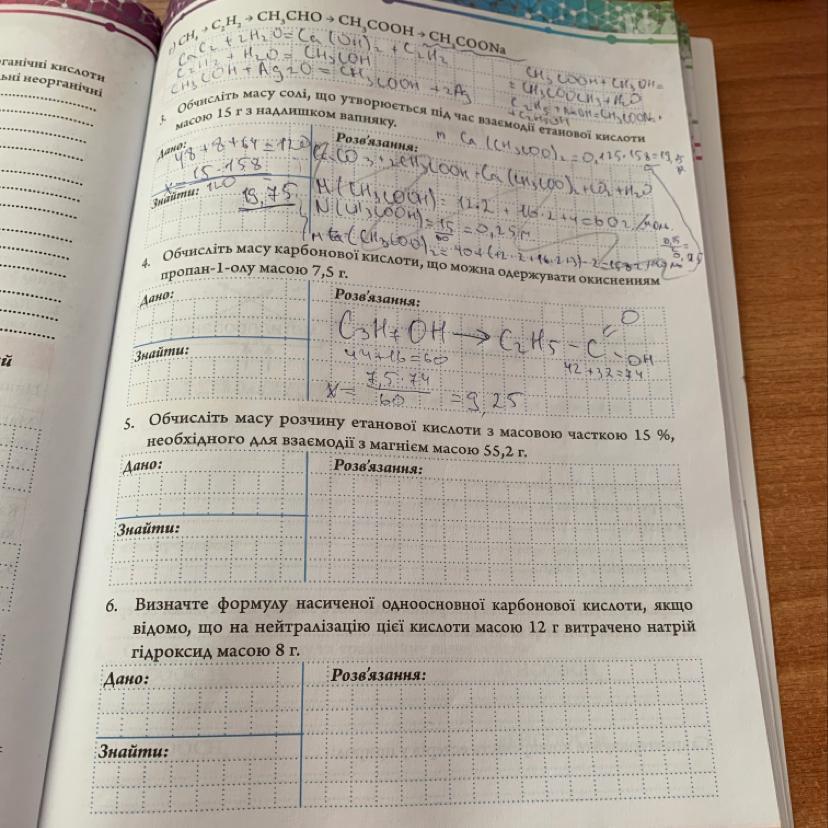 рганічні кислоти
ьні неорганічні
CH₄ → C₂H₂ → CH₃CHO → CH₃COOH → CH₃COONa
CaC₂ + 2H₂O = Ca(OH)₂ + C₂H₂
C₂H₂ + H₂O = CH₃COH
CH₃COH + Ag₂O = CH₃COOH + 2Ag
CH₃COOH + CH₃OH =
= CH₃COOCH₃ + H₂O
3. Обчисліть масу солі, що утворюється під час взаємодії етанової кислоти
масою 15 г з надлишком вапняку.
m Ca(CH₃COO)₂ = 0,125·158 = 19,5
Дано:
48+8+64=120
x = 15·158
120
19,75
Знайти:
Розв'язання:
CaCO₃ + 2CH₃COOH = Ca(CH₃COO)₂ + CO₂ + H₂O
M(CH₃COOH) = 12·2 + 16·2 + 4 = 60 г/моль
N(CH₃COOH) = 15/60 = 0,25 м
4. Обчисліть масу карбонової кислоти, що можна одержувати окисненням
пропан-1-олу масою 7,5 г.
Дано:
Розв'язання:
C₃H₇OH → C₂H₅ – C
O
OH
44+16=60
42+32=74
Знайти:
x = 7,5·74
60
= 9,25
5. Обчисліть масу розчину етанової кислоти з масовою часткою 15 %,
необхідного для взаємодії з магнієм масою 55,2 г.
Дано:
Розв'язання:
Знайти:
6. Визначте формулу насиченої одноосновної карбонової кислоти, якщо
відомо, що на нейтралізацію цієї кислоти масою 12 г витрачено натрій
гідроксид масою 8 г.
Дано:
Розв'язання:
Знайти: